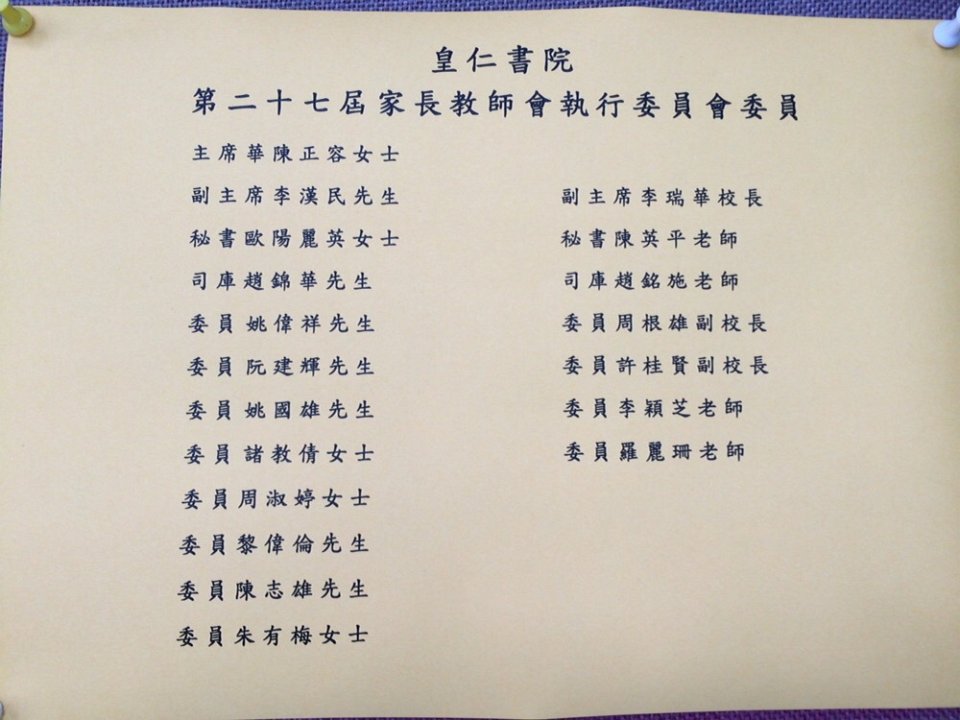 皇仁書院
第二十七屆家長教師會執行委員會委員
主席華陳正容女士
副主席李漢民先生
秘書歐陽麗英女士
司庫趙錦華先生
委員姚偉祥先生
委員阮建輝先生
委員姚國雄先生
委員諸教倩女士
委員周淑婷女士
委員黎偉倫先生
委員陳志雄先生
委員朱有梅女士
副主席李瑞華校長
秘書陳英平老師
司庫趙銘施老師
委員周根雄副校長
委員許桂賢副校長
委員李穎芝老師
委員羅麗珊老師